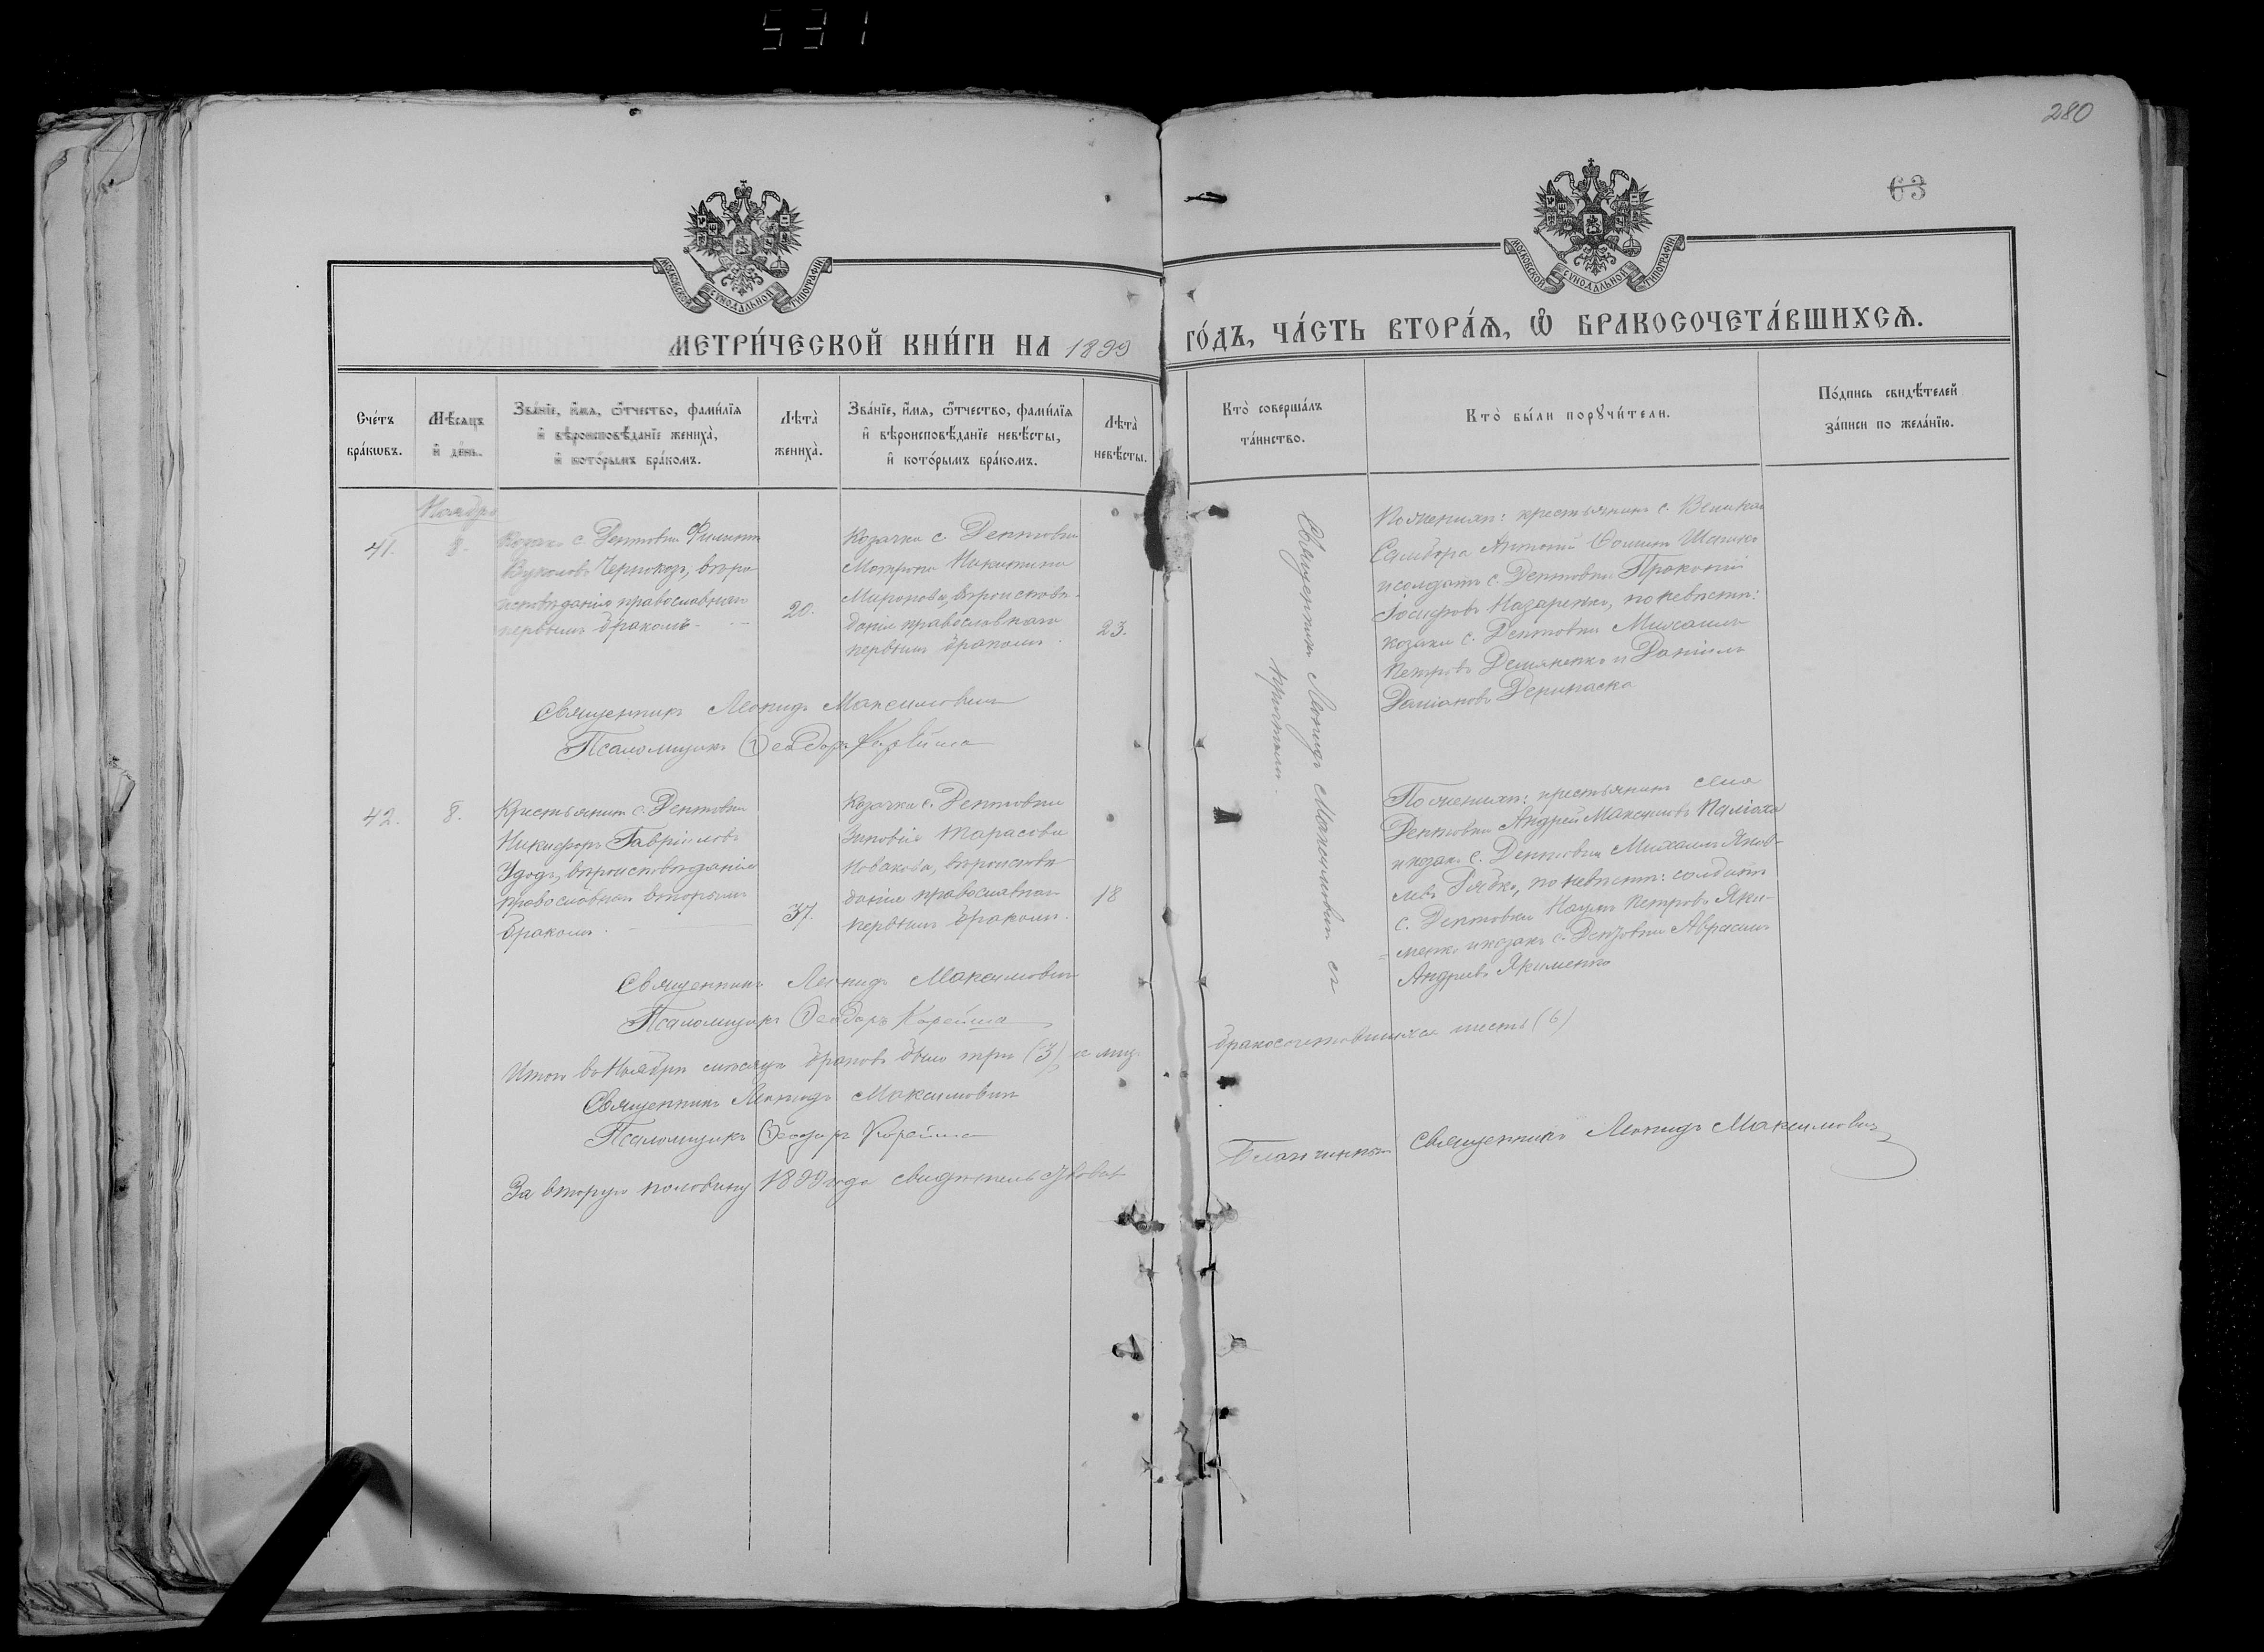 531
280
63
МОСКОВСКОЙ СУНОДАЛЬНОЙ ТИПОГРАФІИ
МОСКОВСКОЙ СУНОДАЛЬНОЙ ТИПОГРАФІИ
МЕТРИ́ЧЕСКОЙ КНИ́ГИ НА 1899 ГО́ДЪ, ЧА́СТЬ ВТОРА́Ѧ, Ѽ БРАКОСОЧЕТА́ВШИХСѦ.
Сче́тъ бра́кωвъ.
Мѣ́сѧцъ и҆ де́нь.
Зва́нїе, и҆́мѧ, ѻ҆́тчество, фами́лїѧ и҆ вѣроисповѣ́данїе жениха̀, и҆ кото́рымъ бра́комъ.
Лѣта̀ жениха̀.
Зва́нїе, и҆́мѧ, ѻ҆́тчество, фами́лїѧ и҆ вѣроисповѣ́данїе невѣ́сты, и҆ кото́рымъ бра́комъ.
Лѣта̀ невѣ́сты.
Кто̀ соверша́лъ та́инство.
Кто̀ бы́ли порꙋчи́тели.
По́дпись свидѣ́телей за́писи по жела́нїю.
Ноябрь
41.
8.
Козакъ с. Дептовки Филиппъ
Вуколовъ Чернокозъ, вѣро
исповѣданія православнаго
первымъ бракомъ
20.
Козачка с. Дептовки
Матрона Никитина
Миронова, вѣроисповѣ-
данія православнаго
первымъ бракомъ.
23.
Священникъ Леонидъ Максимовичъ съ
причтомъ.
По женихѣ: крестьянинъ с. Великаго
Самбора Антоній
и солдатъ с. Дептовки Прокопій
Іосифовъ Назаренко, по невѣстѣ:
козаки с. Дептовки Михаилъ
Петровъ Демяненко и Даніилъ
Даміановъ Дерипаска
Священникъ Леонидъ Максимовичъ
Псаломщикъ Ѳеодоръ Корейша
42.
8.
Крестьянинъ с. Дептовки
Никифоръ Гавріиловъ
Удодъ, вѣроисповѣданія
православнаго вторымъ
бракомъ.
37.
Козачка с. Дептовки
Зиновія Тарасова
Новакова, вѣроисповѣ-
данія православнаго
первымъ бракомъ.
18
По женихѣ: крестьянинъ села
Дептовки Андрей Максимовъ
и козакъ с. Дептовки Михаилъ Яков-
левъ Рябко, по невѣстѣ: солдатъ
с. Дептовки Наумъ Петровъ Яки-
менко и козакъ с. Дептовки Аврамъ
Андреевъ Якименко
Священникъ Леонидъ Максимовичъ
Псаломщикъ Ѳеодоръ Корейша
Итого въ Ноябрѣ мѣсяцѣ браковъ было три (3), а лицъ бракосочетавшихся шесть (6)
Священникъ Леонидъ Максимовичъ
Псаломщикъ Ѳеодоръ Корейша
За вторую половину 1899 года свидѣтельствовалъ
Благочинный Священникъ Леонидъ Максимовичъ